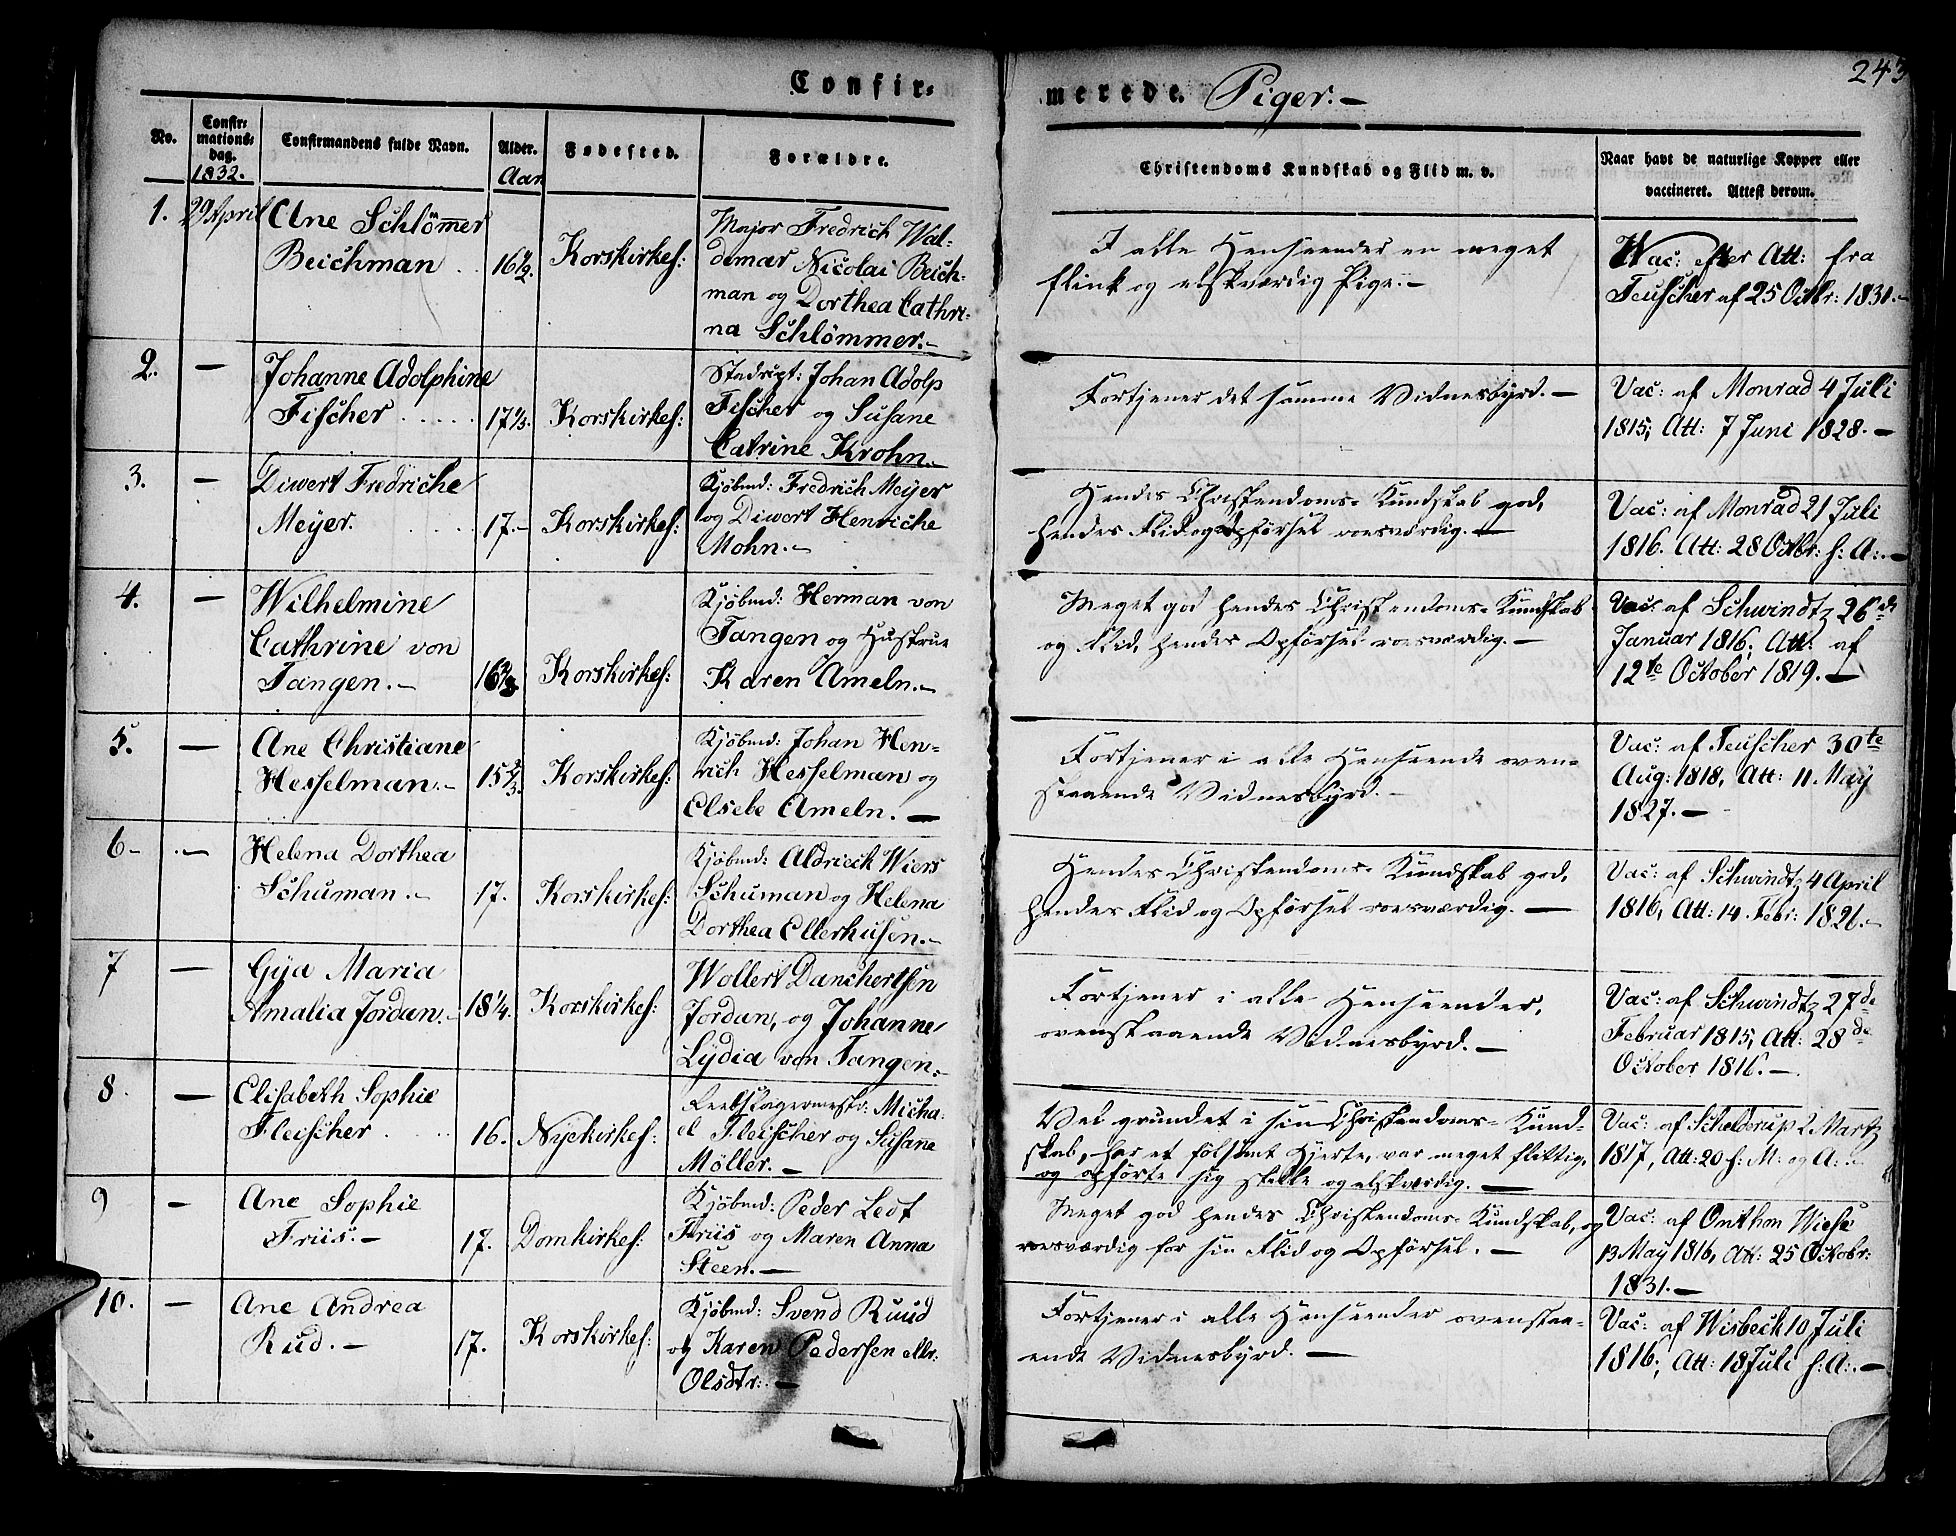 243
Confir-
merede. Piger.-
No.
Confir-
mations-
dag.
1832.
Confirmandens fulde Navn.
Alder.
Aar
Fødested.
Forældre.
Christendoms Kundskab og Flid m. v.
Naar havt de naturlige Kopper eller
vaccineret. Attest derom.
1. 29 April
Ane Schlømmer
Beichman
16½.
Korskirkes:
Major Fredrich Wal-
demar Nicolai Beich-
man og Dorthea Cathri-
na Schlømmer.-
I alle Henseender en meget
flink og elskværdig Pige.-
Vac: efter Att: fra
Teuscher af 25 Octbr: 1831.-
2. —
Johanne Adolphine
Fischer
17⅓.
Korskirkes:
Johan Adolp
Fischer og Susane
Catrine Krohn.-
Fortjener det samme Vidnesbyrd.-
Vac: af Monrad 4 Juli
1815, Att: 7 Juni 1828.-
3. —
Diwert Fredriche
Meyer.
17.-
Korskirkes:
Kjøbmd: Fredrich Meyer
og Diwert Henriche
Mohn.-
Hendes Christendoms-Kundskab god,
hendes Flid og Opførsel roesværdig.—
Vac: af Monrad 21 Juli
1816. Att: 28 Octbr: s: A:.-
4. —
Wilhelmine
Cathrine von
Tangen.-
Korskirkes:
Kjøbmd: Herman von
Tangen og Hustrue
Karen Ameln.-
Meget god hendes Christendoms-Kundskab
og Flid, hendes Opførsel roesværdig.—
Vac: af Schwindtz 26de
Januar 1816; Att: af
12te October 1819.—
5. —
Ane Christiane
Hesselman.-
15⅔.
Korskirkes:
Kjøbmd: Johan Hen-
rich Hesselman og
Elsebe Ameln.—
Fortjener i alle Henseende oven-
staaende Vidnesbyrd.-
Vac: af Teuscher 30te
Aug: 1818, Att: 11. May
1827.—
6- —
Helena Dorthea
Schuman.-
17.
Korskirkes:
Kjøbmd: Aldrieck Wiers
Schuman og Helena
Dorthea Ellerhusen.-
Hendes Christendoms-Kundskab god,
hendes Flid og Opførsel roesværdig.—
Vac: af Schwindtz 4 April
1816, Att: 14. Febr: 1826.-
7 —
Gya Maria
Amalia Jordan.-
18¼.
Korskirkes:
Wollert Danchertsen
Jordan, og Johanne
Lydia von Tangen-
Fortjener i alle Henseender,
ovenstaaende Vidnesbyrd.—
Vac: af Schwindtz 27de
Februar 1815, Att: 28de
October 1816.—
8. —
Elisabeth Sophie
Fleischer
16.
Nyekirkes:
Reebslagermestr: Micha-
el Fleischer og Susane
Møller.—
Vel grundet i sin Christendoms-Kund-
skab, har et følsomt Hjerte, var meget flittig,
og opførte sig stille og elskværdig.—
Vac: af Schelderup 2 Martz
1817, Att: 20 s: M: og A:.-
9 —
Ane Sophie
Friis.-
17.
Domkirkes:
Kjøbmd: Peder Ledt
Friis og Maren Anna
Steen.—
Meget god hendes Christendoms-Kundskab, og
roesværdig for sin Flid og Opførsel.—
Vac: af Onthon Wiese
13 May 1816, Att: 25 Octobr:
1831.—
10. —
Ane Andrea
Rud.-
17.
Korskirkes:
Kjøbmd: Svend Ruud
og Karen Pedersen ellr:
Olsdtr:.—
Fortjener i alle Henseender ovenstaa-
ende Vidnesbyrd.—
Vac: af Wisbeck 10 Juli
1816, Att: 18 Juli s: A:.—